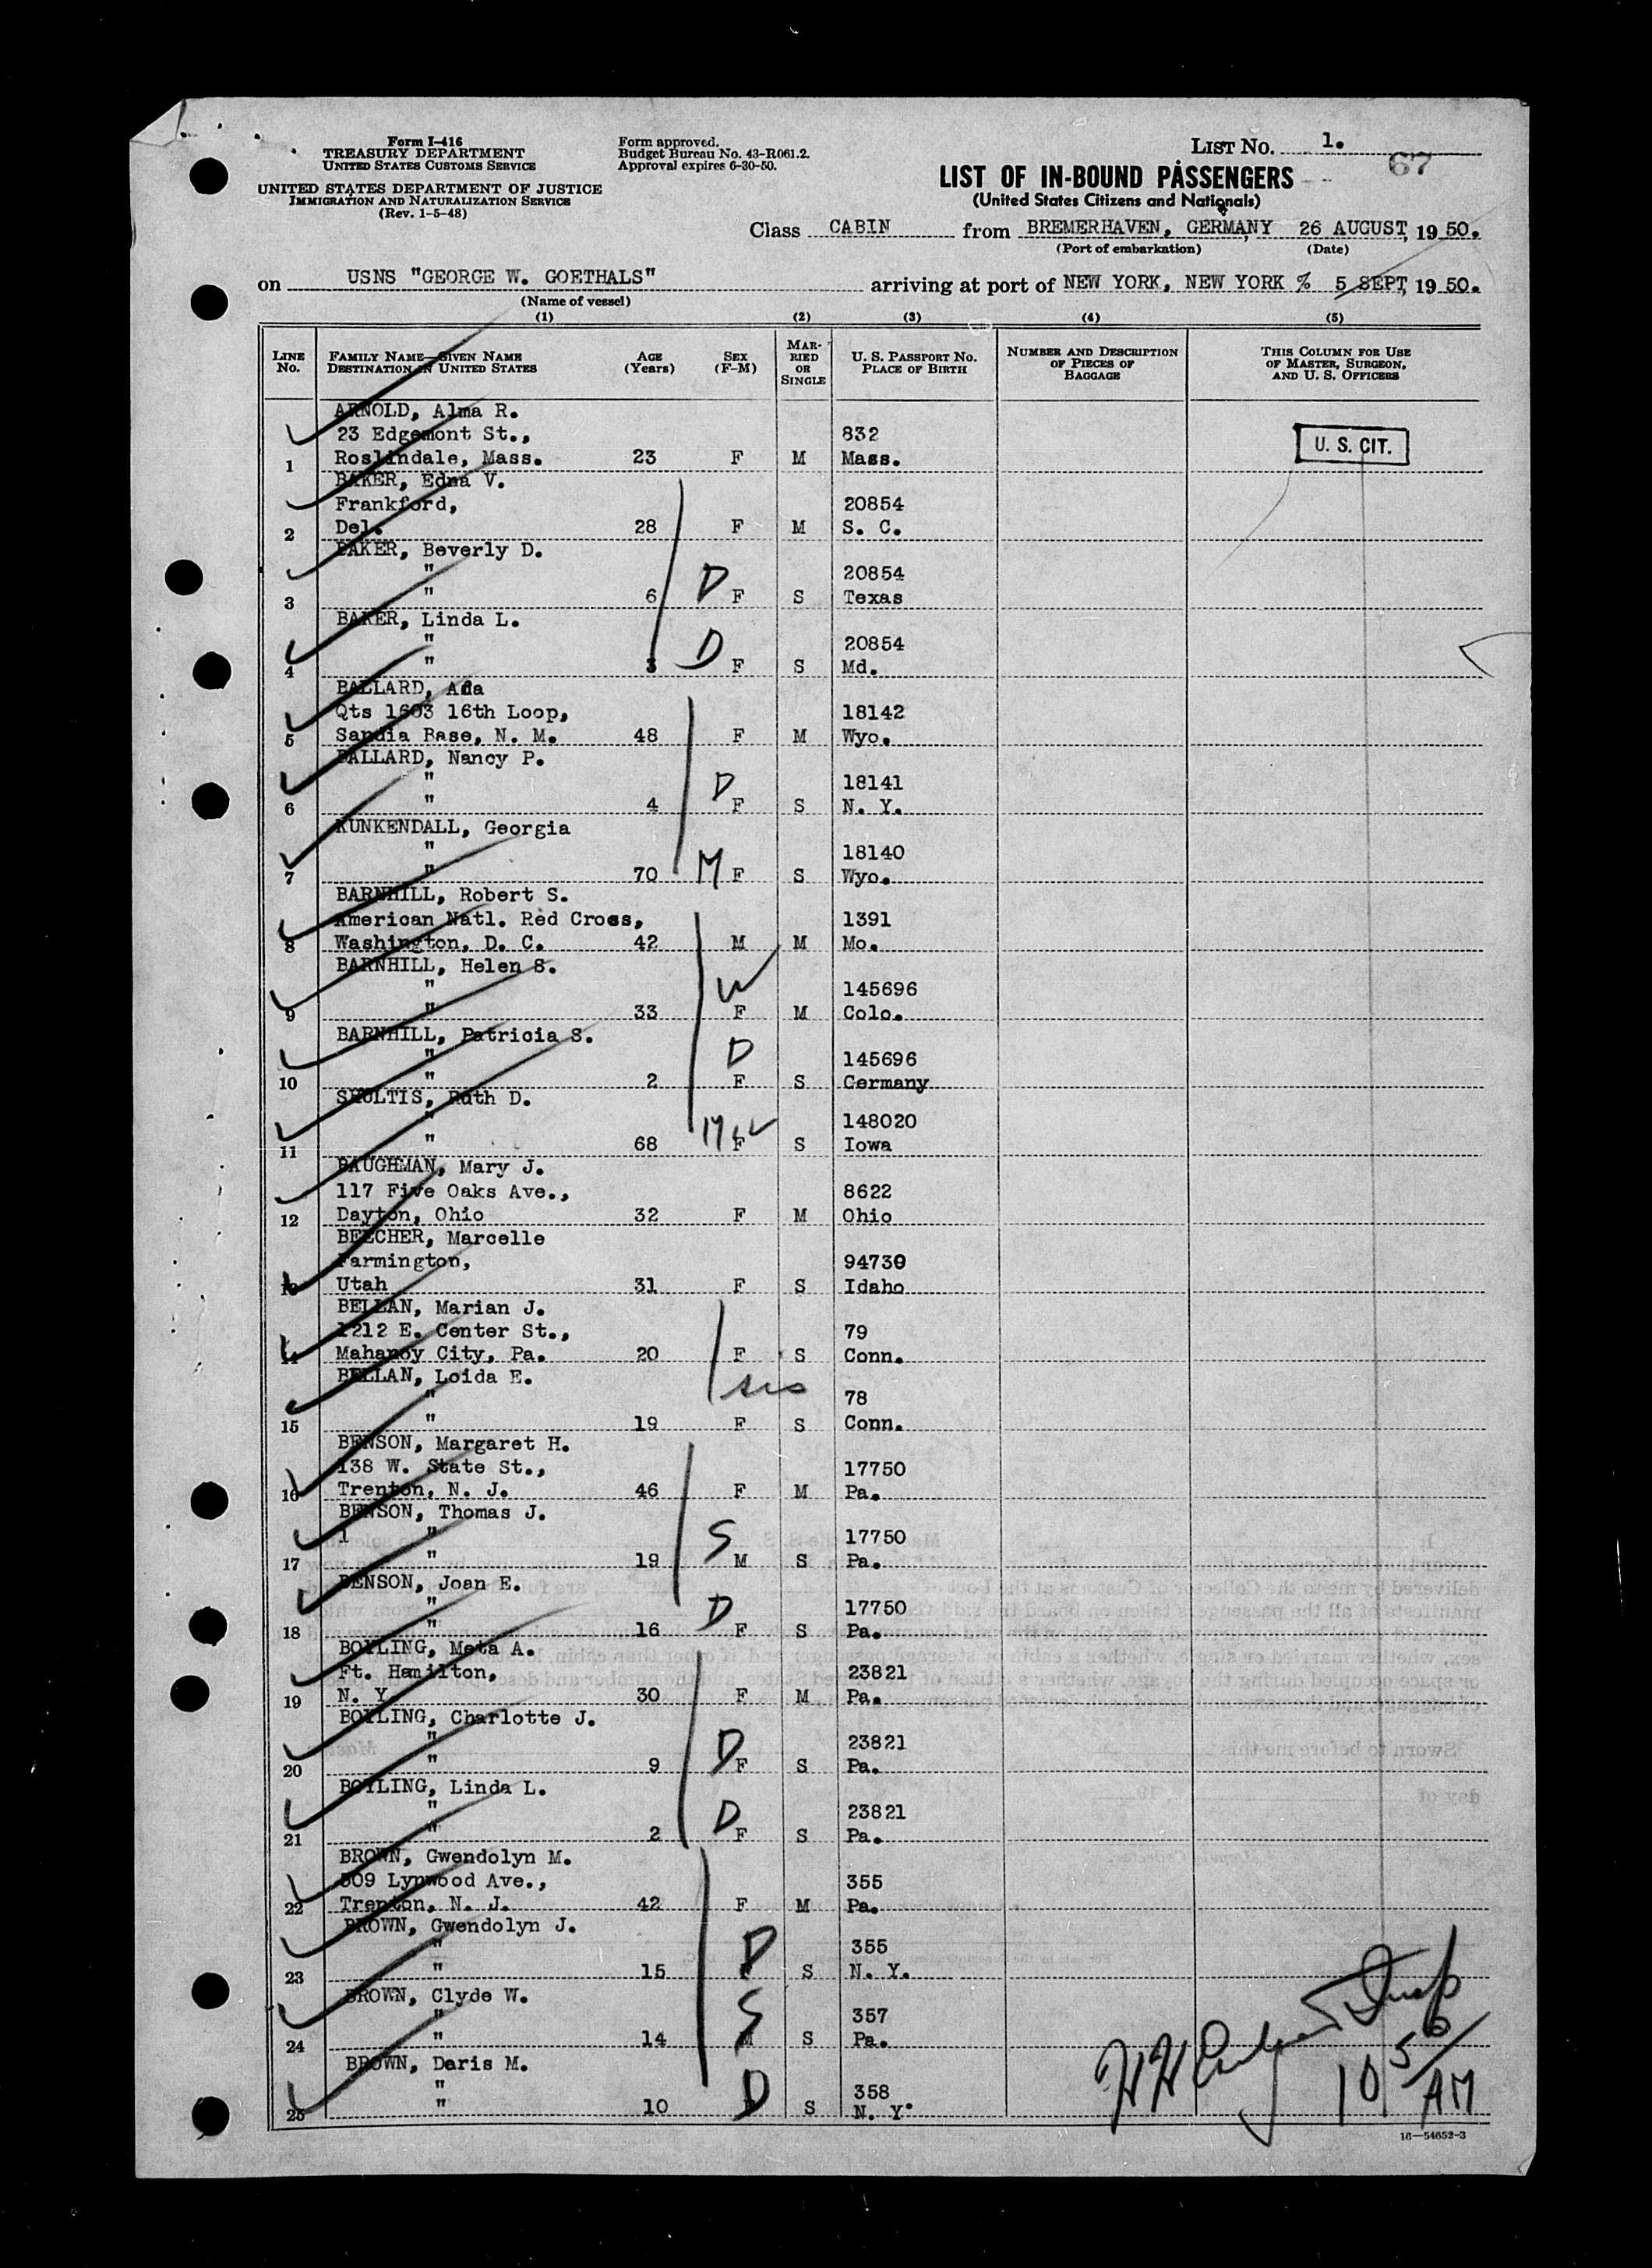 Form I-416
TREASURY DEPARTMENT
UNITED STATES CUSTOMS SERVICE
UNITED STATES DEPARTMENT OF JUSTICE
IMMIGRATION AND NATURALIZATION SERVICE
(Rev. 1-5-48)
Form approved.
Budget Bureau No. 43-R061.2.
Approval expires 6-30-50.
LIST NO. 1.
67
LIST OF IN-BOUND PASSENGERS
(United States Citizens and Nationals)
Class CABIN from BREMERHAVEN, GERMANY 26 AUGUST, 19 50.
(Port of embarkation) (Date)
on USNS "GEORGE W. GOETHALS" arriving at port of NEW YORK, NEW YORK % 5 SEPT, 19 50.
(Name of vessel)
(1) (2) (3) (4) (5)
LINE NO. FAMILY NAME—GIVEN NAME DESTINATION IN UNITED STATES AGE (Years) SEX (F-M) MARRIED OR SINGLE U. S. PASSPORT NO. PLACE OF BIRTH NUMBER AND DESCRIPTION OF PIECES OF BAGGAGE THIS COLUMN FOR USE OF MASTER, SURGEON, AND U. S. OFFICERS
ARNOLD, Alma R.
23 Edgemont St., 832 U. S. CIT.
1 Roslindale, Mass. 23 F M Mass.
BAKER, Edna V.
Frankford, 20854
2 Del. 28 F M S. C.
BAKER, Beverly D.
" 20854
3 " 6 D F S Texas
BAKER, Linda L.
" 20854
4 " 3 D F S Md.
BALLARD, Ada
Qts 1603 16th Loop, 18142
5 Sandia Base, N. M. 48 F M Wyo.
BALLARD, Nancy P.
" 18141
6 " 4 D F S N. Y.
KUNKENDALL, Georgia
" 18140
7 " 70 M F S Wyo.
BARNHILL, Robert S.
American Natl. Red Cross, 1391
8 Washington, D. C. 42 M M Mo.
BARNHILL, Helen S.
" W 145696
9 " 33 F M Colo.
BARNHILL, Patricia S.
" D 145696
10 " 2 F S Germany
SHOLTIS, Ruth D.
" 148020
11 " 68 F S Iowa
BAUGHMAN, Mary J.
117 Five Oaks Ave., 8622
12 Dayton, Ohio 32 F M Ohio
BEECHER, Marcelle
Farmington, 94730
13 Utah 31 F S Idaho
BELLAN, Marian J.
1212 E. Center St., 79
14 Mahanoy City, Pa. 20 F S Conn.
BELLAN, Loida E. sis
" 78
15 " 19 F S Conn.
BENSON, Margaret H.
138 W. State St., 17750
16 Trenton, N. J. 46 F M Pa.
BENSON, Thomas J.
1 " S 17750
17 " 19 M S Pa.
BENSON, Joan E.
" D 17750
18 " 16 F S Pa.
BOYLING, Meta A.
Ft. Hamilton, 23821
19 N. Y. 30 F M Pa.
BOYLING, Charlotte J.
" D 23821
20 " 9 F S Pa.
BOYLING, Linda L.
" D 23821
21 " 2 F S Pa.
BROWN, Gwendolyn M.
509 Lynwood Ave., 355
22 Trenton, N. J. 42 F M Pa.
BROWN, Gwendolyn J.
" D 355
23 " 15 F S N. Y.
BROWN, Clyde W.
" S 357
24 " 14 M S Pa.
BROWN, Daris M.
" D 358
25 " 10 S N. Y.
Insp
10 AM
16—54652-3